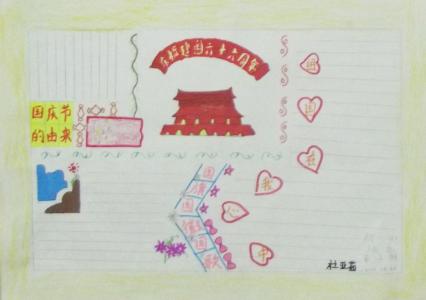 庆祝建国六十六周年
国庆节
的由来
祖
国
在
我
心
中
国旗国徽国歌
杜亚